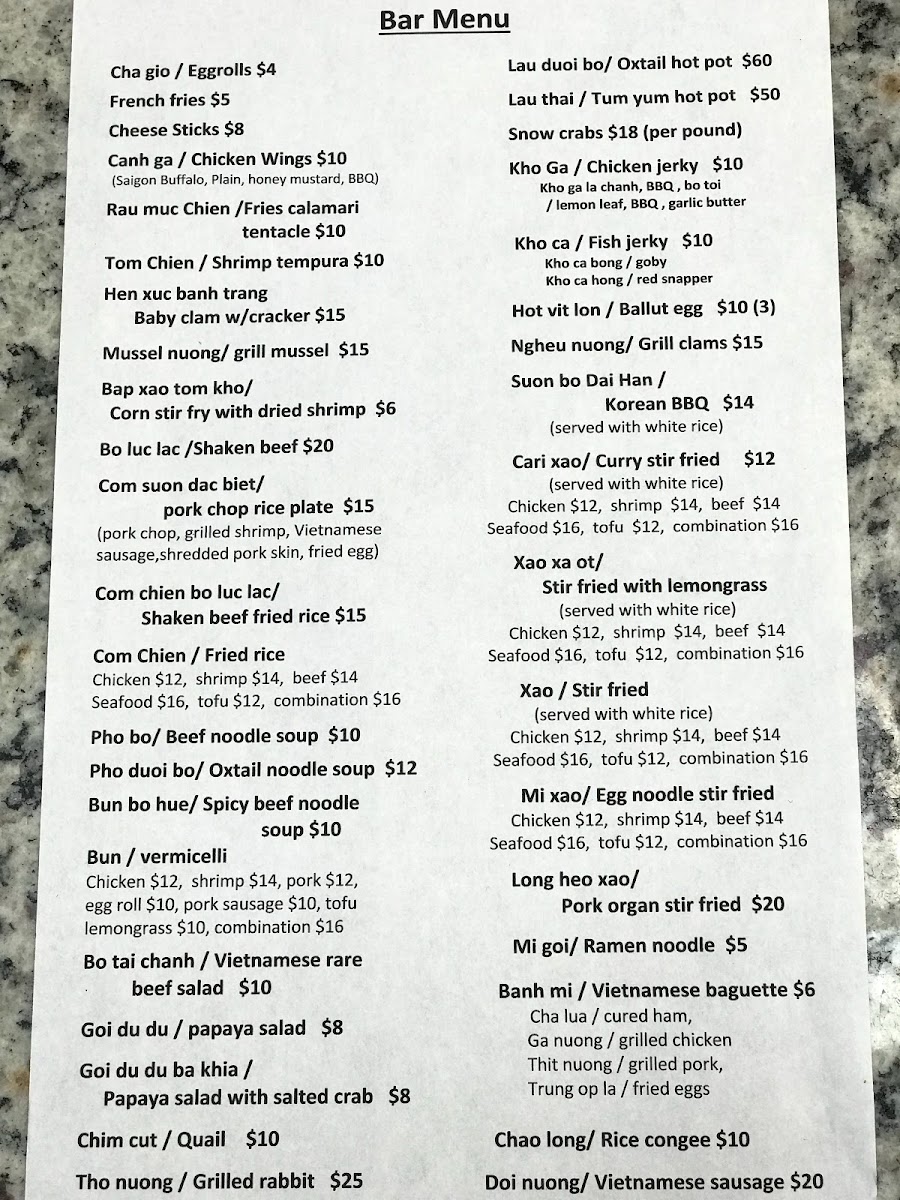 Bar Menu
Cha gio / Eggrolls $4
French fries $5
Cheese Sticks $8
Canh ga / Chicken Wings $10
(Saigon Buffalo, Plain, honey mustard, BBQ)
Rau muc Chien /Fries calamari
tentacle $10
Tom Chien / Shrimp tempura $10
Hen xuc banh trang
Baby clam w/cracker $15
Mussel nuong/ grill mussel $15
Bap xao tom kho/
Corn stir fry with dried shrimp $6
Bo luc lac /Shaken beef $20
Com suon dac biet/
pork chop rice plate $15
(pork chop, grilled shrimp, Vietnamese
sausage,shredded pork skin, fried egg)
Com chien bo luc lac/
Shaken beef fried rice $15
Com Chien / Fried rice
Chicken $12, shrimp $14, beef $14
Seafood $16, tofu $12, combination $16
Pho bo/ Beef noodle soup $10
Pho duoi bo/ Oxtail noodle soup $12
Bun bo hue/ Spicy beef noodle
soup $10
Bun / vermicelli
Chicken $12, shrimp $14, pork $12,
egg roll $10, pork sausage $10, tofu
lemongrass $10, combination $16
Bo tai chanh / Vietnamese rare
beef salad $10
Goi du du / papaya salad $8
Goi du du ba khia /
Papaya salad with salted crab $8
Chim cut / Quail $10
Tho nuong / Grilled rabbit $25
Lau duoi bo/ Oxtail hot pot $60
Lau thai / Tum yum hot pot $50
Snow crabs $18 (per pound)
Kho Ga / Chicken jerky $10
Kho ga la chanh, BBQ , bo toi
/ lemon leaf, BBQ , garlic butter
Kho ca / Fish jerky $10
Kho ca bong / goby
Kho ca hong / red snapper
Hot vit lon / Ballut egg $10 (3)
Ngheu nuong/ Grill clams $15
Suon bo Dai Han /
Korean BBQ $14
(served with white rice)
Cari xao/ Curry stir fried $12
(served with white rice)
Chicken $12, shrimp $14, beef $14
Seafood $16, tofu $12, combination $16
Xao xa ot/
Stir fried with lemongrass
(served with white rice)
Chicken $12, shrimp $14, beef $14
Seafood $16, tofu $12, combination $16
Xao / Stir fried
(served with white rice)
Chicken $12, shrimp $14, beef $14
Seafood $16, tofu $12, combination $16
Mi xao/ Egg noodle stir fried
Chicken $12, shrimp $14, beef $14
Seafood $16, tofu $12, combination $16
Long heo xao/
Pork organ stir fried $20
Mi goi/ Ramen noodle $5
Banh mi / Vietnamese baguette $6
Cha lua / cured ham,
Ga nuong / grilled chicken
Thit nuong / grilled pork,
Trung op la / fried eggs
Chao long/ Rice congee $10
Doi nuong/ Vietnamese sausage $20